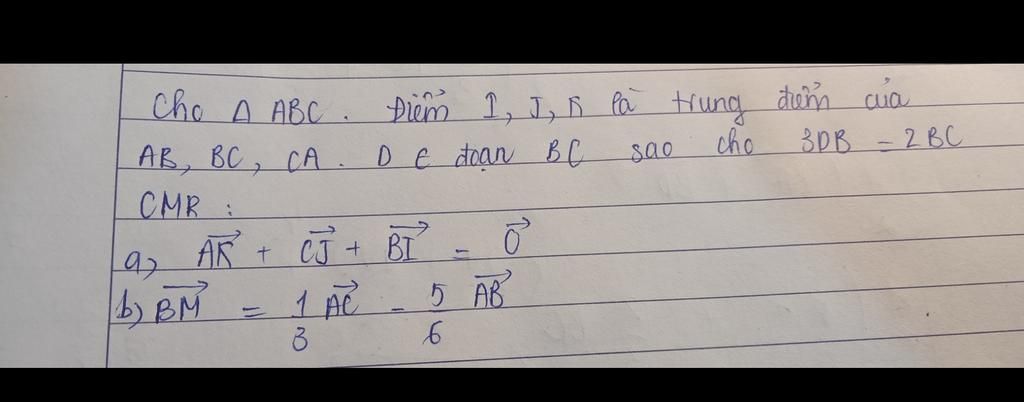 Cho Δ ABC. Điểm I, J, K là trung điểm của
AB, BC, CA. D ∈ đoạn BC sao cho 3DB = 2BC
CMR :
a) $\overrightarrow{AK} + \overrightarrow{CJ} + \overrightarrow{BI} = \overrightarrow{0}$
b) $\overrightarrow{BM} = \frac{1}{3} \overrightarrow{AC} - \frac{5}{6} \overrightarrow{AB}$